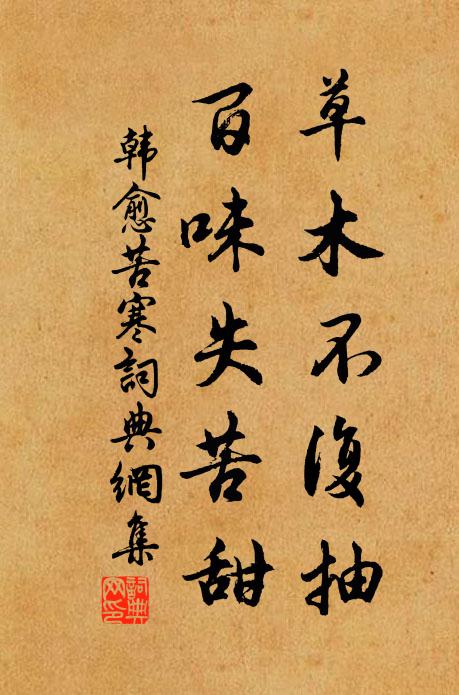 草木不復抽
百味失苦甜
韩愈苦寒詞典網集
詞典网印